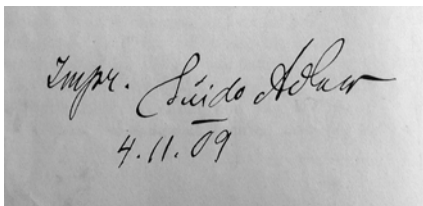 Impr. Guido Adler
4.11.09